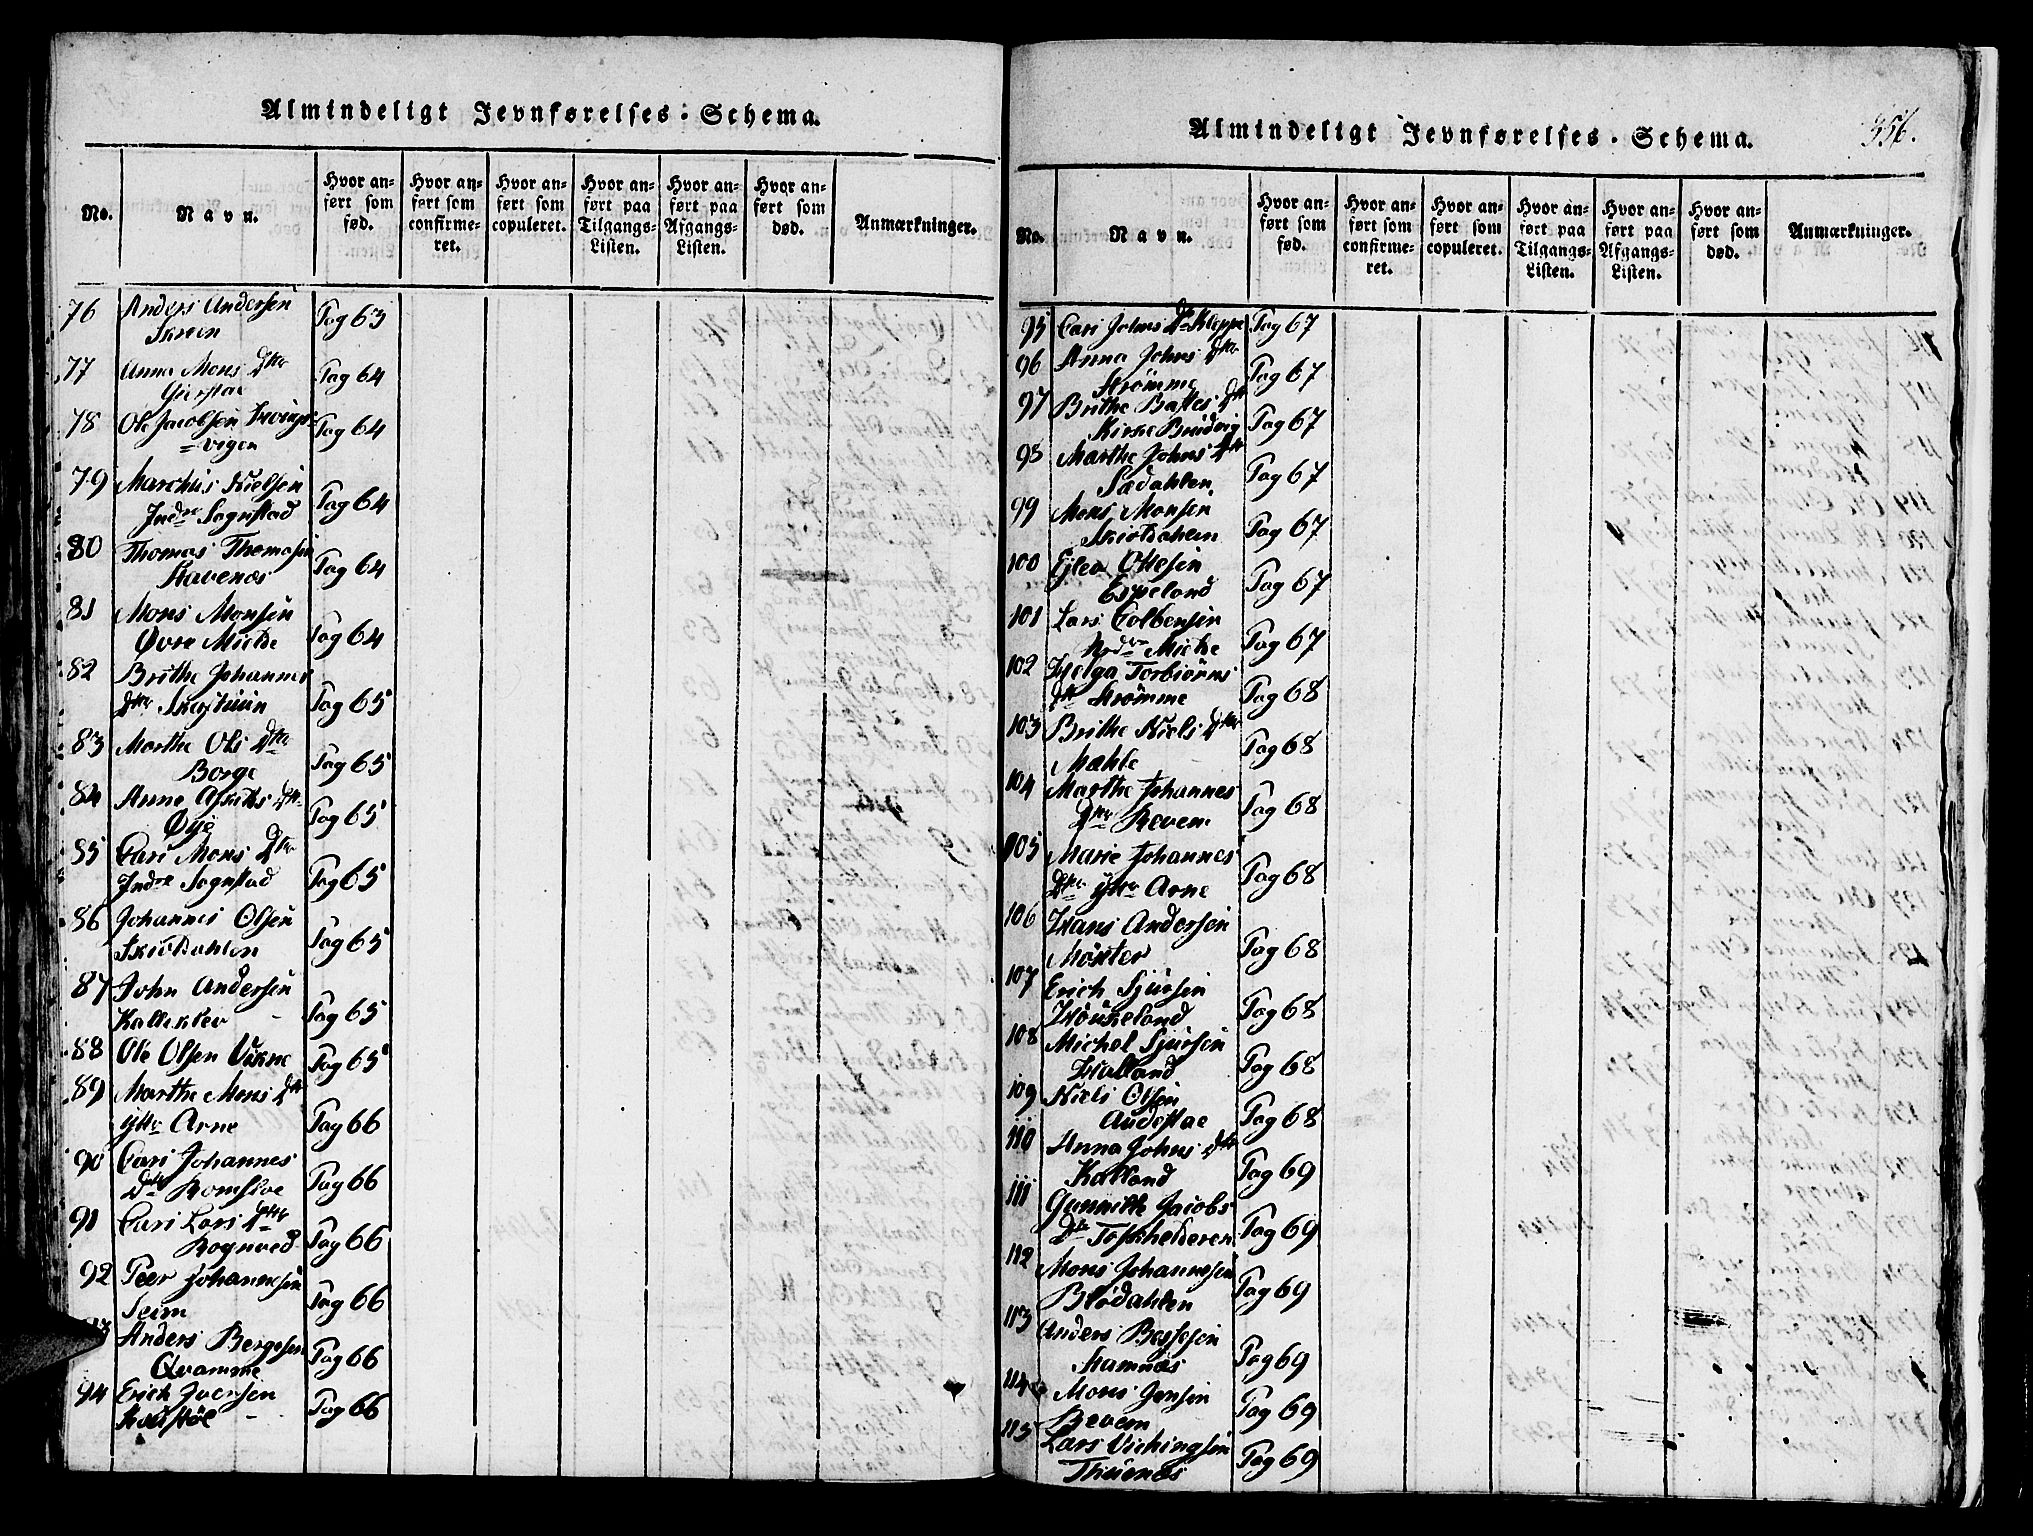 Almindeligt Jevnførelses-Schema.
No.
Navn.
Hvor an-
ført som
fød.
Hvor an-
ført som
confirme-
ret.
Hvor an-
ført som
copuleret.
Hvor an-
ført paa
Tilgangs-
Listen.
Hvor an-
ført paa
Afgangs-
Listen.
Hvor an-
ført som
død.
Anmærkninger.
76 Anders Andersen Pag 63
77 Anna Mons Dttr Pag 64
78 Ole Jacobsen Pag 64
= vigen
79 Marchus Nielsen Pag 64
Indre Sognstad
80 Thomas Thomasen Pag 64
Stavenæs
81 Mons Monsen Pag 64
Øvre Mickle
82 Brithe Johannes Pag 65
Dttr
83 Marthe Ols Dttr Pag 65
Borge
84 Anne Dttr Pag 65
Øye
85 Cari Mons Dttr
Indre Sognstad Pag 65
86 Johannes Olsen Pag 65
Skiødahlen
87 John Andersen
Kalleklev Pag 65
88 Ole Olsen Vikne Pag 65
89 Marthe Mons Dttr
ytte Arne Pag 66
90 Cari Johannes
Dttr Romsloe Pag 66
91 Cari Lars Dttr
Rognved Pag 66
92 Peer Johannesen
Seim Pag 66
93 Anders Bergesen
Qvamme Pag 66
94 Erich Iversen
Pag 66
Almindeligt Jevnførelses-Schema.
356.
No.
Navn.
Hvor an-
ført som
fød.
Hvor an-
ført som
confirme-
ret.
Hvor an-
ført som
copuleret.
Hvor an-
ført paa
Tilgangs-
Listen.
Hvor an-
ført paa
Afgangs-
Listen.
Hvor an-
ført som
død.
Anmærkninger.
95 Cari Johns Dtr Kleppe Pag 67
96 Anna Johns Dttr
Strømme Pag 67
97 Brithe Dtr
Kirke Pag 67
98 Marthe Johns Dtr
Sædahlen Pag 67
99 Mons Monsen
Skiødahlen Pag 67
100 Ejlev Ottesen
Espeland Pag 67
101 Lars Colbensen
Nedre Mickle Pag 67
102 Helga Torbiørns
Dtr Strømme Pag 68
103 Brithe Niels Dttr
Mæhle Pag 68
104 Marthe Johannes
Dttr Revem Pag 68
105 Marie Johannes
Dttr ytte Arne Pag 68
106 Hans Andersen
Møxter Pag 68
107 Erich Sjursen
Houkeland Pag 68
108 Michel Sjursen
Kalland Pag 68
109 Niels Olsen
Pag 68
110 Anna Johns Dtr
Kalland Pag 69
111 Gunnilde Jacobs
Dtr Toskhelderen Pag 69
112 Mons Johannesen
Blødahlen Pag 69
113 Anders Bessesen
Hamnæs Pag 69
114 Mons Jensen
Revem Pag 69
115 Lars Vichingsen
Thuenæs Pag 69